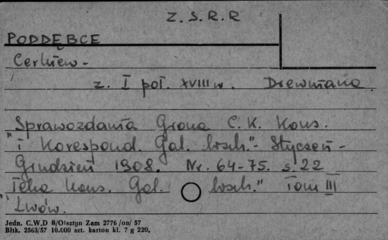 Z. S. R. R
PODDĘBCE
Cerkiew -
z. I poł. XVIII w. Drewniana.
"Sprawozdania Grona C. K. Kons.
i Korespond. Gal. wsch." - Styczeń -
Grudzień 1908. Nr. 64-75. s. 22
"Teka Kons. Gal. wsch." Tom III
Lwów.
Jedn. C,W,D 8/Olsztyn Zam 2776/on/ 57
Błtk. 2563/57 10.000 szt. karton kl. 7 g 220.